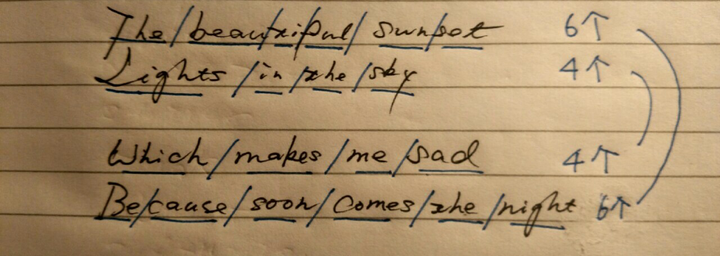 The/beau/ti/ful/sun/set 6↑
Lights/in/the/sky 4↑
Which/makes/me/sad 4↑
Be/cause/soon/comes/the/night 6↑